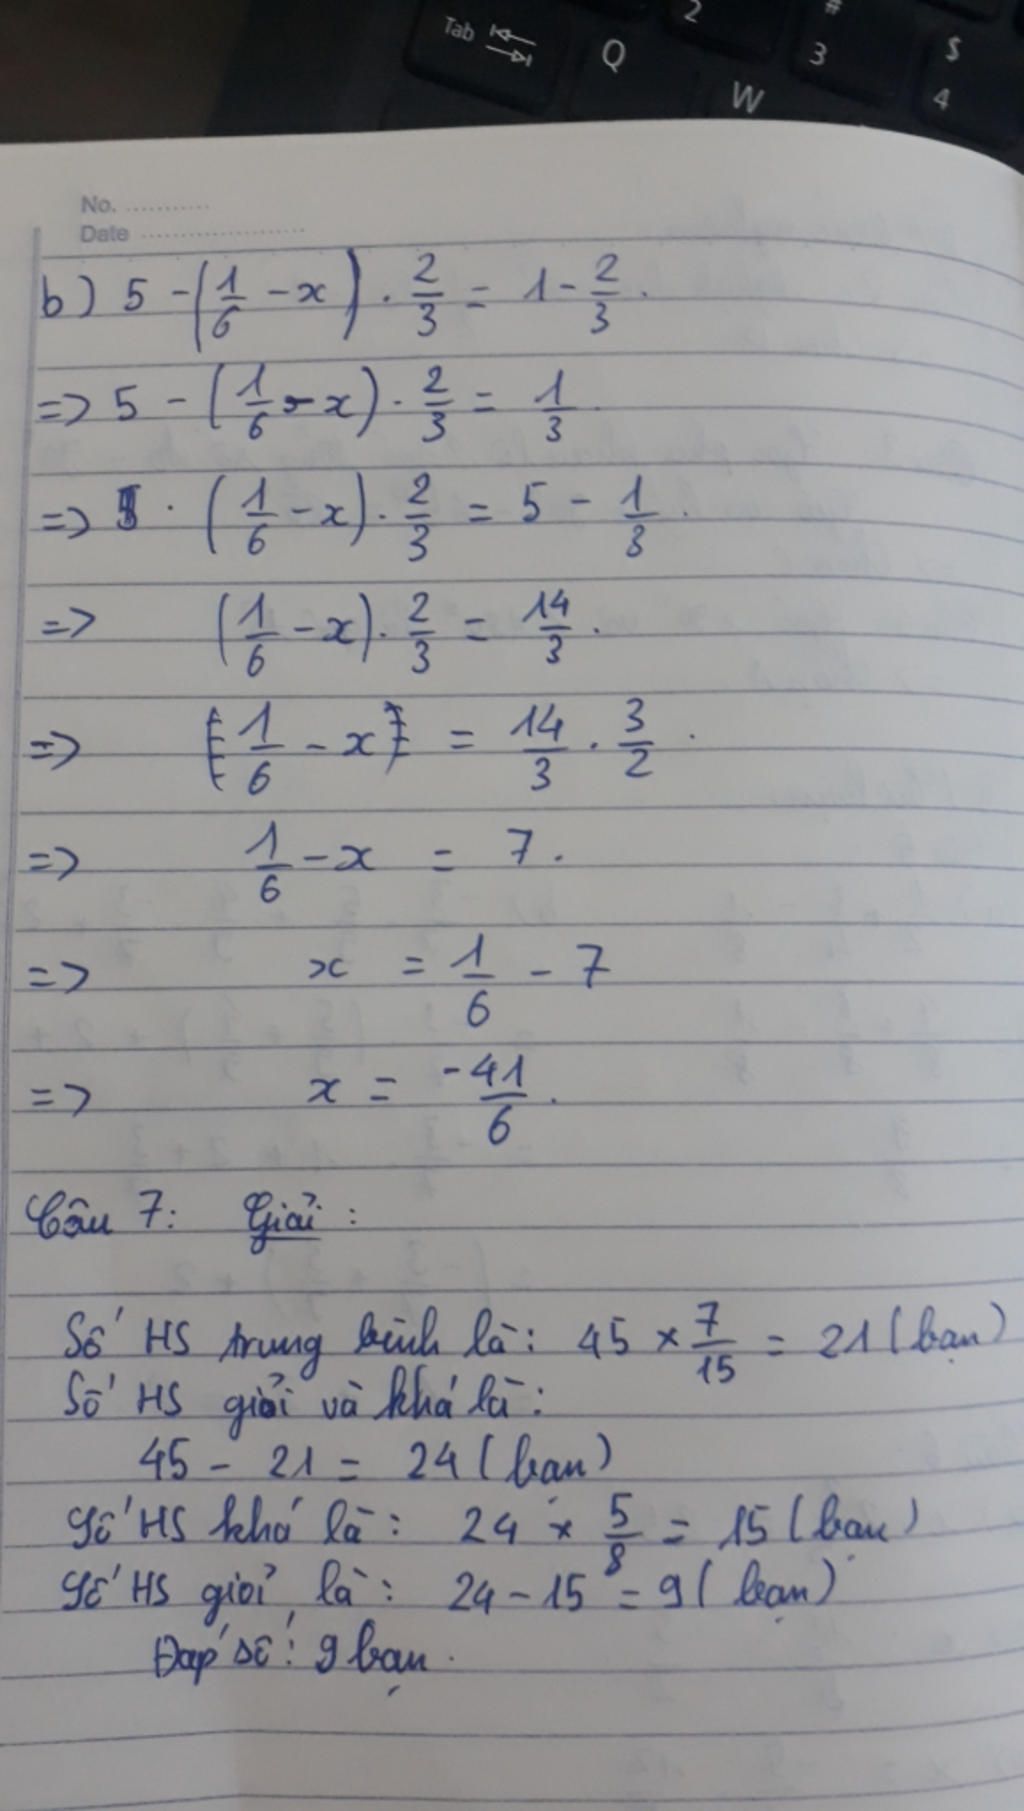 Tab
Q
W
2
#
3
$
4
No. ...........
Date .....................
b) 5 - (1/6 - x) . 2/3 = 1 - 2/3.
=> 5 - (1/6 - x) . 2/3 = 1/3.
=> . (1/6 - x) . 2/3 = 5 - 1/3.
=> (1/6 - x) . 2/3 = 14/3.
=> (1/6 - x) = 14/3 . 3/2.
=> 1/6 - x = 7.
=> x = 1/6 - 7
=> x = -41/6.
Câu 7: Giải:
Số HS trung bình là: 45 × 7/15 = 21 (bạn)
Số HS giỏi và khá là:
45 - 21 = 24 (bạn)
Số HS khá là: 24 × 5/8 = 15 (bạn)
Số HS giỏi là: 24 - 15 = 9 (bạn)
Đáp số: 9 bạn.